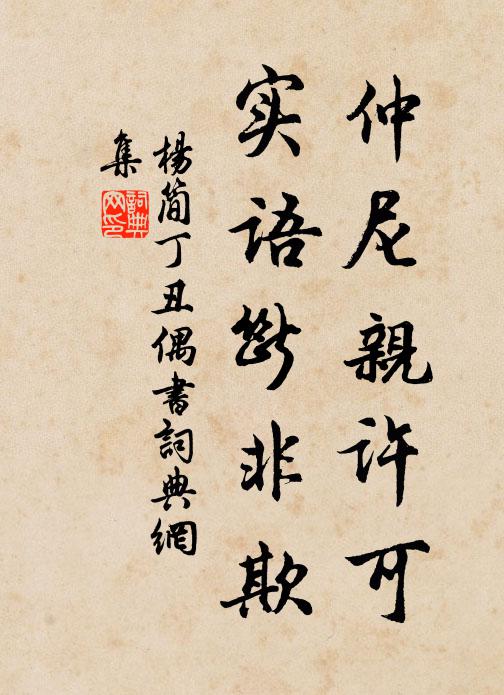 仲尼親许可
实语断非欺
楊简丁丑偶書詞典網
集
詞典
网印